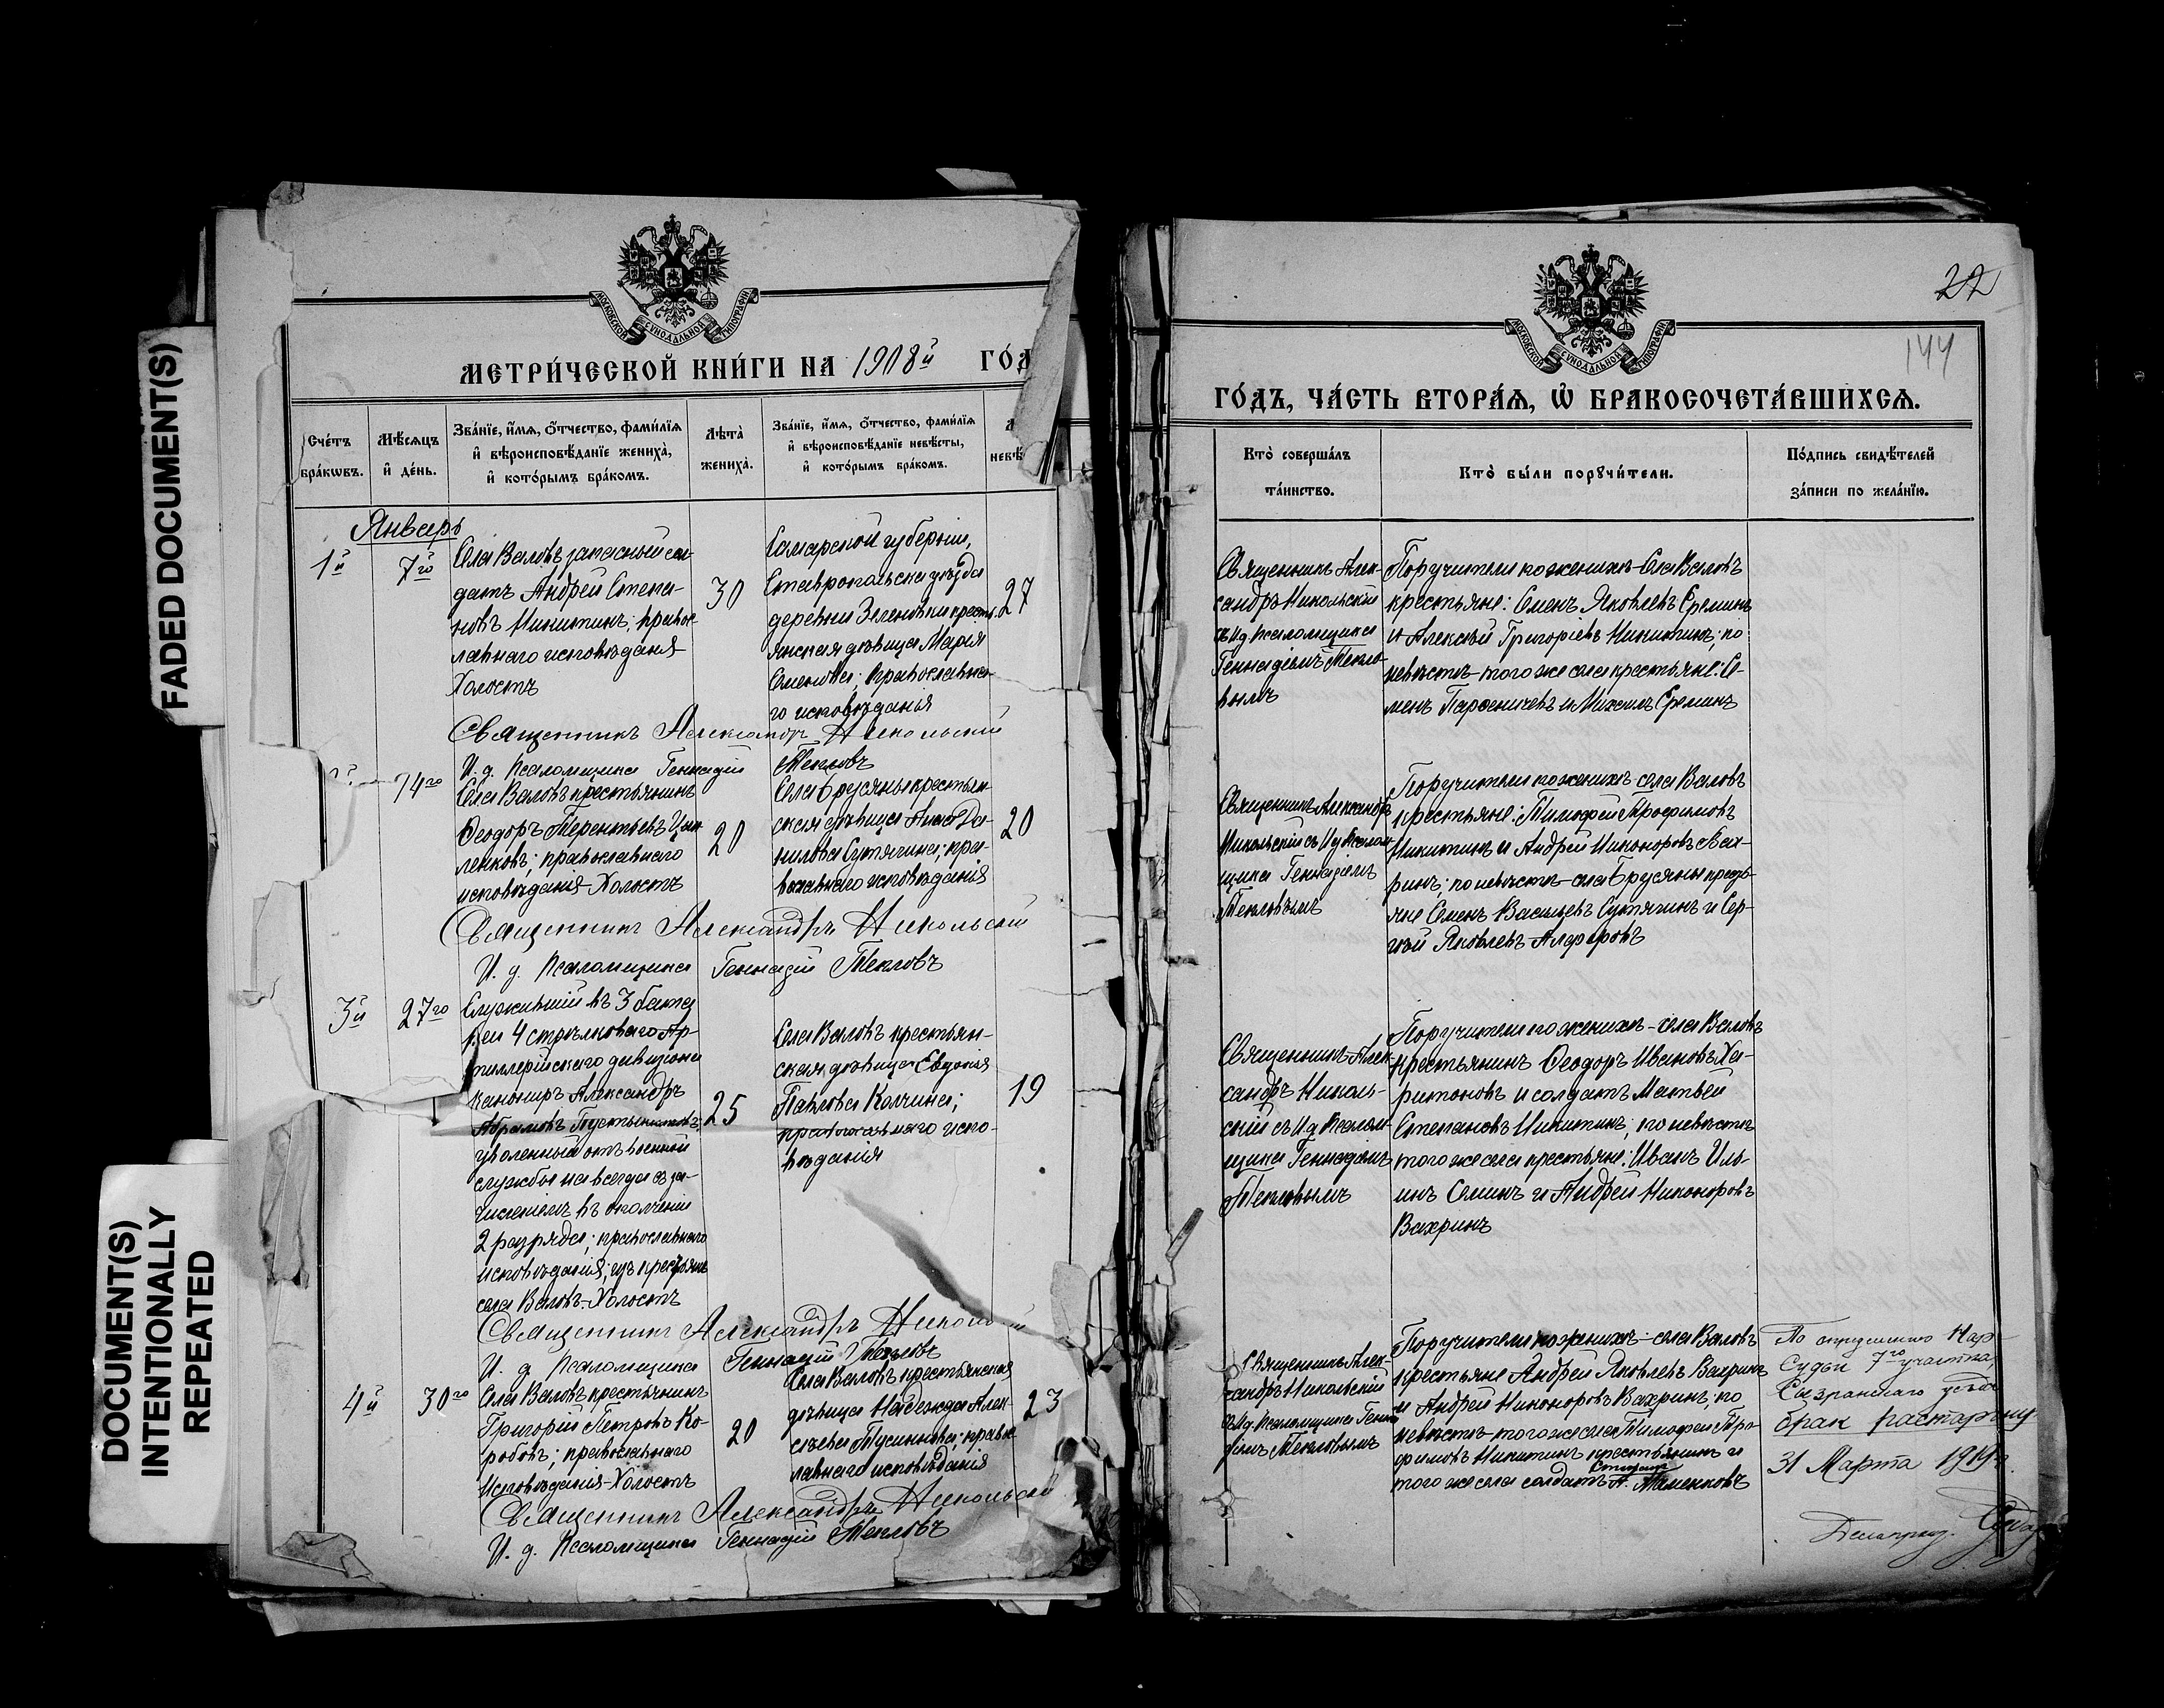 FADED DOCUMENT(S)
DOCUMENT(S)
INTENTIONALLY
REPEATED
МОСКОВСКОЙ СѴНОДАЛЬНОЙ ТИПОГРАФІИ
МЕТРИ́ЧЕСКОЙ КНИ́ГИ НА 1908й ГО́Д
Сче́тъ бра́кѡвъ.
Мѣ́сѧцъ и҆ де́нь.
Зва́нїе, и҆́мѧ, ѻ҆́тчество, фами́лїѧ
и҆ вѣроисповѣ́данїе жениха̀,
и҆ кото́рымъ бра́комъ.
Лѣта̀ жениха̀.
Зва́нїе, и҆́мѧ, ѻ҆́тчество, фами́лїѧ
и҆ вѣроисповѣ́данїе невѣ́сты,
и҆ кото́рымъ бра́комъ.
Январь
1й
7го
Села Валовъ запасный сол-
датъ Андрей Степа-
новъ Никитинъ; правос-
лавнаго исповѣданія
Холостъ
30
Самарской губерніи,
Ставропольска уѣзда
деревни Зеленовки кресть-
янская дѣвица Марія
Семенова; православна-
го исповѣданія
27
Священникъ Александръ Никольскій
И. д. Псаломщика Геннадій Теплов
14го
Села Валовъ крестьянинъ
Ѳеодоръ Терентьевъ Цып-
ленковъ; православнаго
исповѣданія Холостъ
20
Села Брусяны крестьян-
ская дѣвица Анна Да-
нилова Сутягина; пра-
вославнаго исповѣданія
20
Священникъ Александръ Никольскій
И. д. Псаломщика Геннадій Тепловъ
3й
27го
Служившій въ 3 бата-
реи 4 стрѣлковаго Ар-
тиллерійскаго дивизіона
канониръ Александръ
Абрамовъ
уволенный отъ военной
службы на всегда съ за-
численіемъ въ ополченіи
2 разряда; православнаго
исповѣданія; изъ крестьянъ
села Валовъ-Холостъ
25
Села Валовъ крестьян-
ская дѣвица Евдокія
Павлова Колчина;
православнаго испо-
вѣданія
19
Священникъ Александръ Николь й
И. д. Псаломщика Геннадій Тепловъ
4й
30го
Села Валовъ крестьянинъ
Григорій Петровъ Ко-
робовъ; православнаго
Исповѣданія-Холостъ
20
Села Валовъ крестьянская
дѣвица Надежда Алек-
сѣева; правос-
лавнаго исповѣданія
23
Священникъ Александръ Никольскій
И. д. Псаломщика Геннадій Тепловъ
22
144
МОСКОВСКОЙ СѴНОДАЛЬНОЙ ТИПОГРАФІИ
ГО́ДЪ, ЧА́СТЬ ВТОРА́Ѧ, Ѽ БРАКОСОЧЕТА́ВШИХСѦ.
Кто̀ соверша́лъ
та́инство.
Кто̀ бы́ли порꙋчи́тели.
По́дпись свидѣ́телей
за́писи по жела́нїю.
Священникъ Алек-
сандръ Никольскій
съ И.д. Псаломщика
Геннадіемъ Тепло-
вымъ
Поручители по женихѣ-Села Валовъ
крестьяне: Семенъ Яковлевъ Ереминъ
и Алексѣй Григоріевъ Никитинъ; по
невѣстѣ-того же села крестьяне: Се-
менъ Парѳеничевъ и Михаилъ Ереминъ
Священникъ Александръ
Никольскій съ И.д. Псалом-
щика Геннадіемъ
Тепловымъ
Поручители по женихѣ-села Валовъ
крестьяне: Тимофей Трофимовъ
Никитинъ и Андрей Никоноровъ Вах-
ринъ; по невѣстѣ-села Брусяны кресть-
яне Семенъ Васильевъ Сутягинъ и Сер-
гѣй Яковлевъ Алферовъ
Священникъ Алек-
сандръ Николь-
скій съ И.д. Псалом-
щика Геннадіемъ
Тепловымъ
Поручители по женихѣ-села Валовъ
крестьянинъ Ѳеодоръ Ивановъ Ха-
ритоновъ и солдатъ Матвей
Степановъ Никитинъ; по невѣстѣ
того же села крестьяне: Иванъ Иль-
инъ Семинъ и Андрей Никоноровъ
Вахринъ
Священникъ Алек-
сандръ Никольскій
съ И.д. Псаломщика Генна-
діемъ Тепловымъ
Поручители по женихѣ-села Валовъ
крестьяне Андрей Яковлевъ Вахринъ
и Андрей Никоноровъ Вахринъ; по
невѣстѣ-того же села Тимофей Тро-
фимовъ Никитинъ крестьянинъ и
того же села солдатъ
По опредѣленію Нар-
Судьи 7го участка,
Сызранскаго уѣзда
брак расторгну
31 Марта 1919 г.